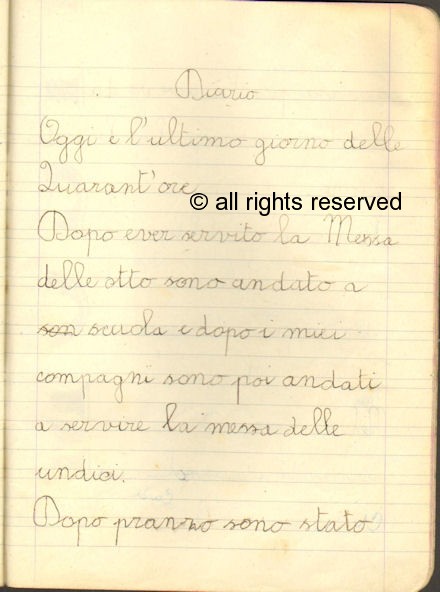 Diario
Oggi è l'ultimo giorno delle
Quarant'ore
© all rights reserved
Dopo ever servito la Messa
delle otto sono andato a
son scuola e dopo i miei
compagni sono poi andati
a servire la messa delle
undici.
Dopo pranzo sono stato